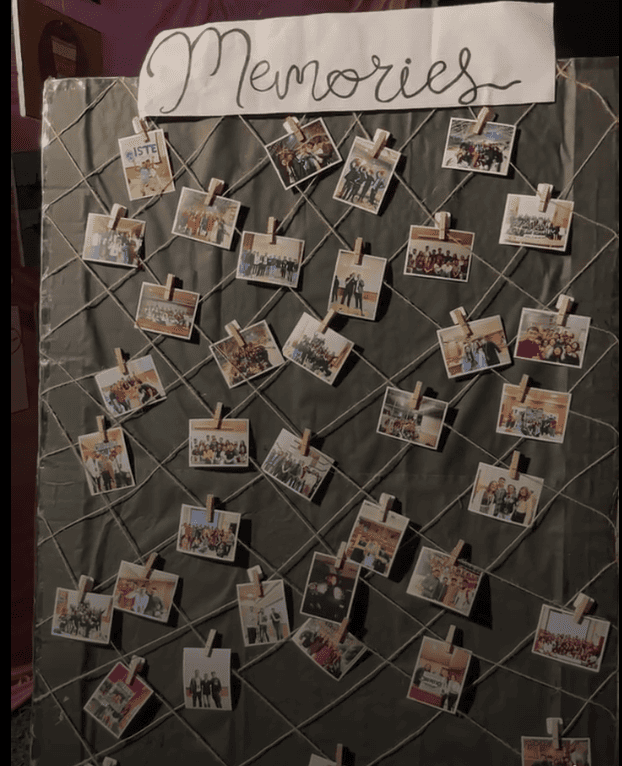 Memories
ISTE